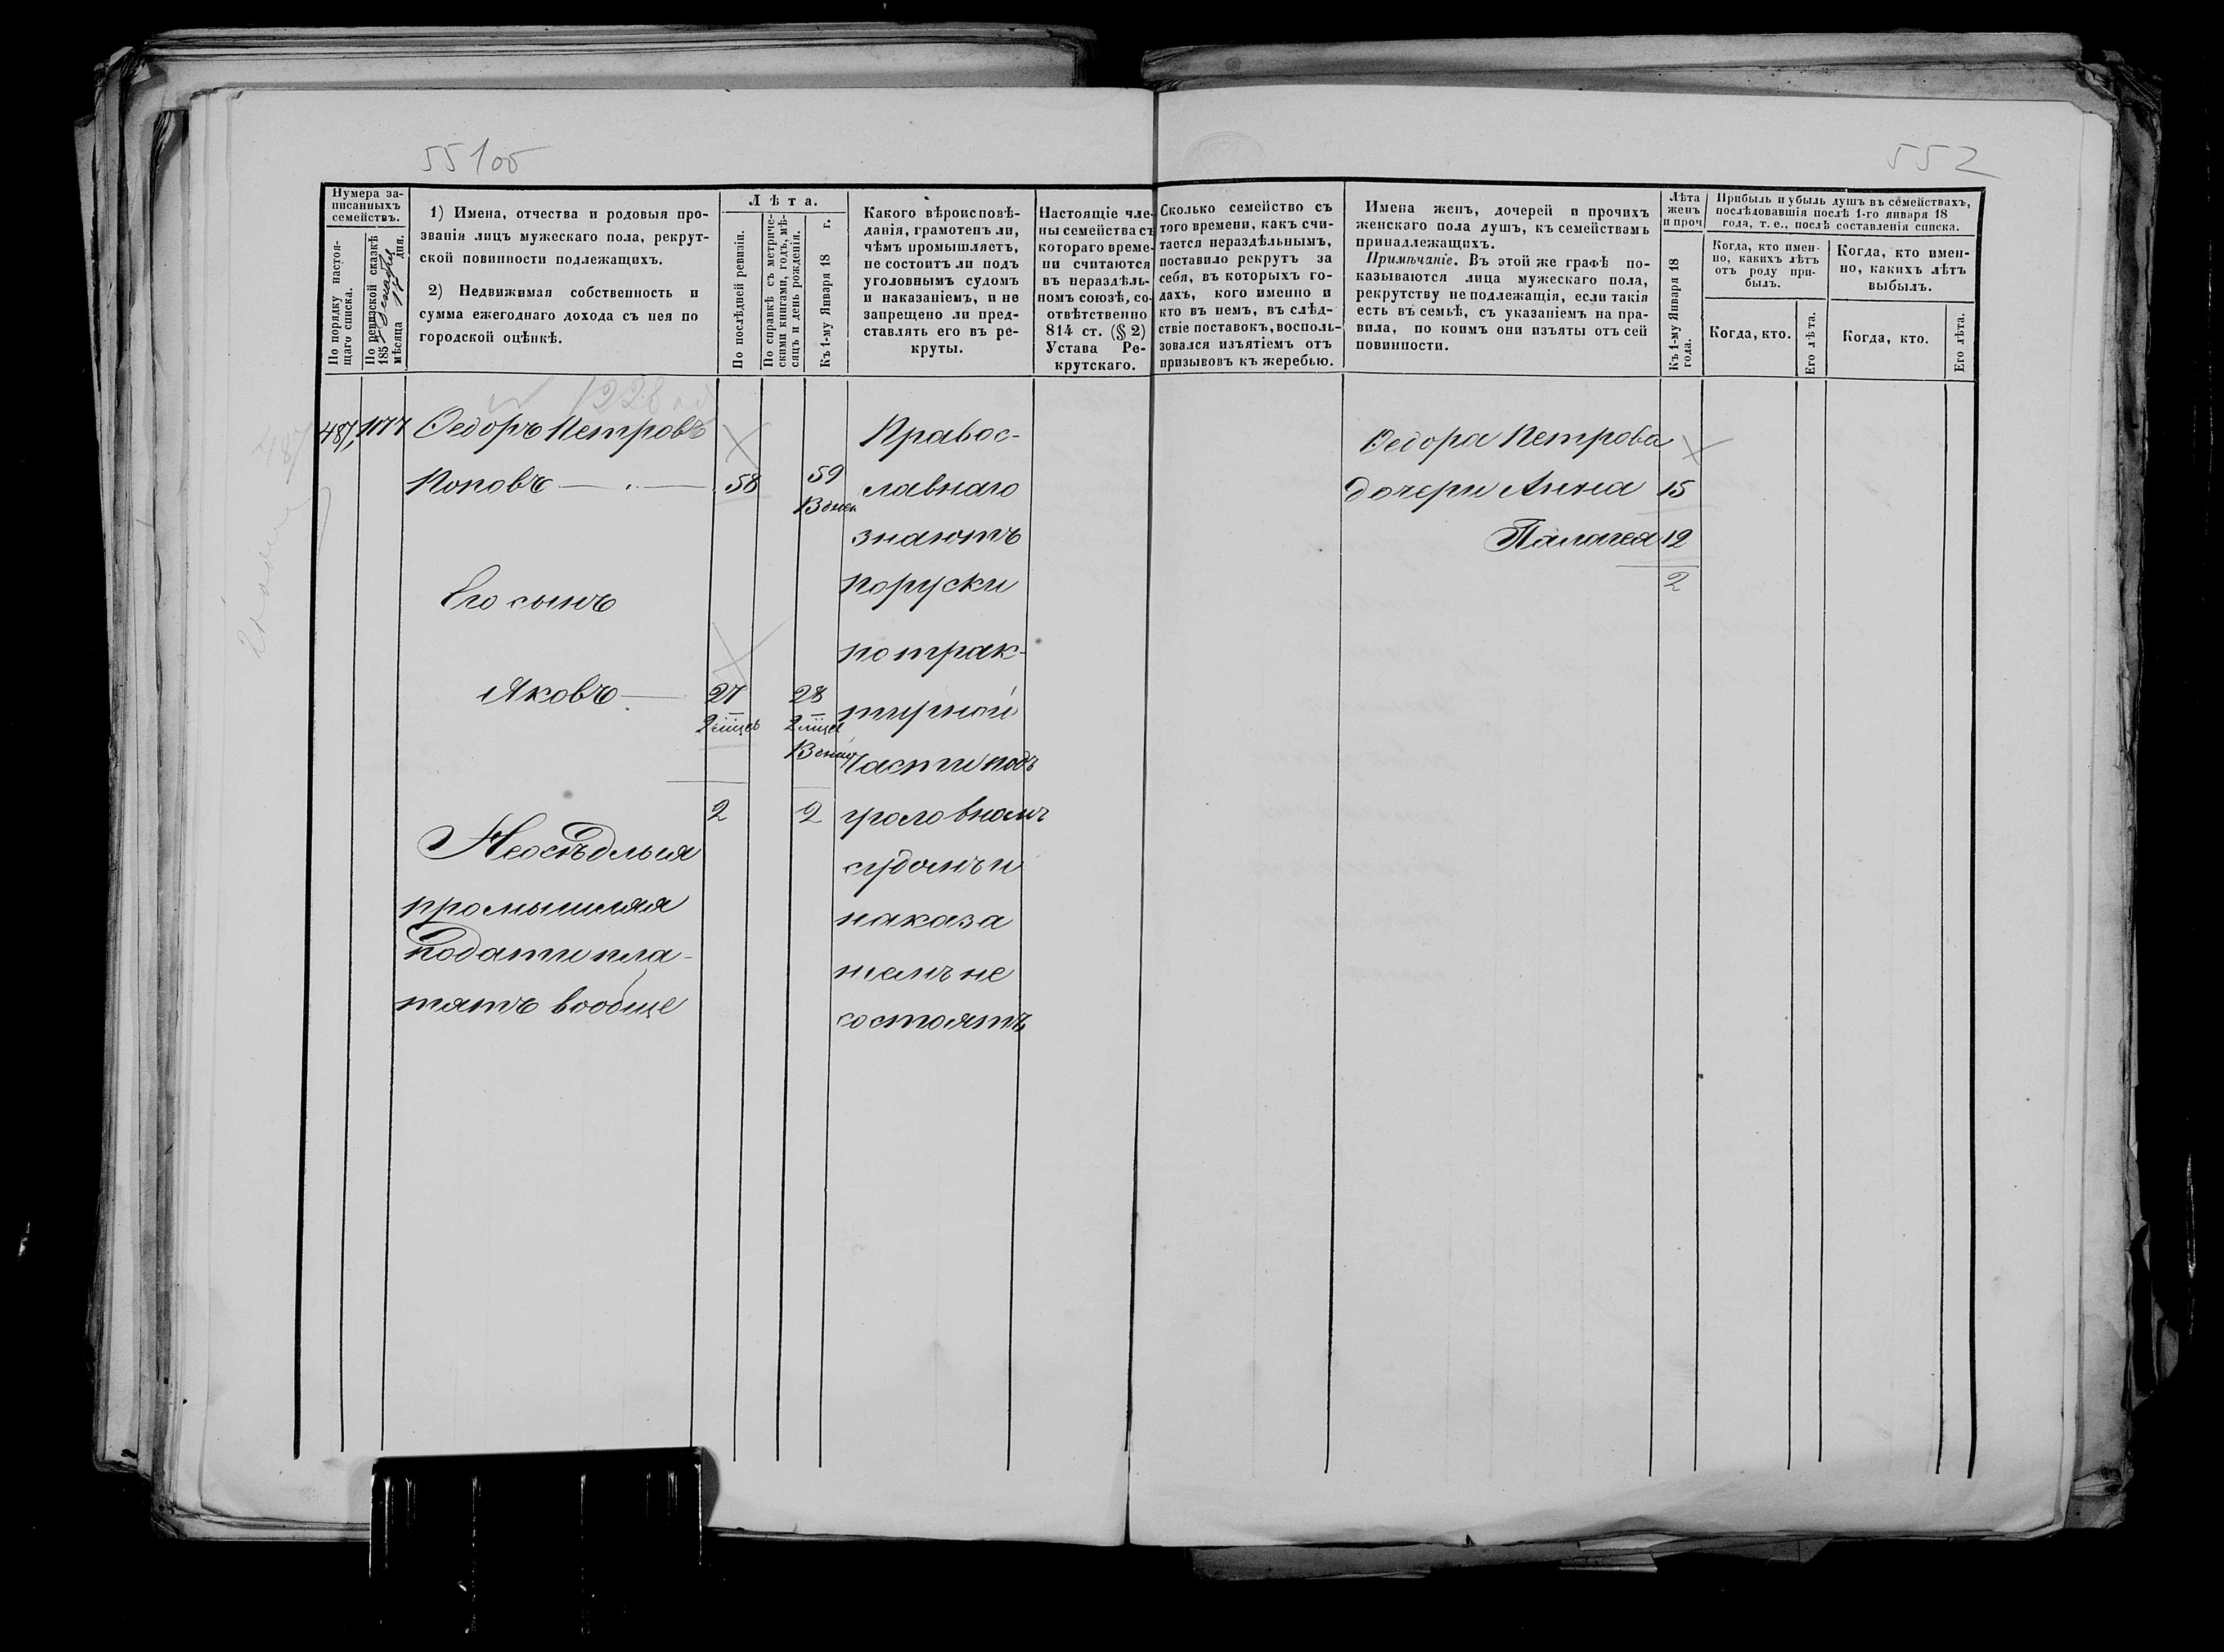 55105
552
Нумера за-
писанныхъ
семействъ.
По порядку настоя-
щаго списка.
По ревизской сказкѣ
185
мѣсяца 17 дня.
1) Имена, отчества и родовыя про-
званія лицъ мужескаго пола, рекрут-
ской повинности подлежащихъ.
2) Недвижимая собственность и
сумма ежегоднаго дохода съ нея по
городской оцѣнкѣ.
Лѣта.
По послѣдней ревизіи.
По справкѣ съ метриче-
скими книгами, годъ, мѣ-
сяцъ и день рожденія.
Къ 1-му Января 18 г.
Какого вѣроисповѣ-
данія, грамотенъ ли,
чѣмъ промышляетъ,
не состоитъ ли подъ
уголовнымъ судомъ
и наказаніемъ, и не
запрещено ли пред-
ставлять его въ ре-
круты.
Настоящіе чле-
ны семейства съ
котораго време-
ни считаются
въ нераздѣль-
номъ союзѣ, со-
отвѣтственно
814 ст. (§ 2)
Устава Ре-
крутскаго.
Сколько семейство съ
того времени, какъ счи-
тается нераздѣльнымъ,
поставило рекрутъ за
себя, въ которыхъ го-
дахъ, кого именно и
кто въ немъ, въ слѣд-
ствіе поставокъ, восполь-
зовался изъятіемъ отъ
призывовъ къ жеребью.
Имена женъ, дочерей и прочихъ
женскаго пола душъ, къ семействамъ
принадлежащихъ.
Примѣчаніе. Въ этой же графѣ по-
казываются лица мужескаго пола,
рекрутству не подлежащія, если такія
есть въ семьѣ, съ указаніемъ на пра-
вила, по коимъ они изъяты отъ сей
повинности.
Лѣта
женъ
и проч
Къ 1-му Января 18
года.
Прибыль и убыль душъ въ семействахъ,
послѣдовавшія послѣ 1-го января 18
года, т. е., послѣ составленія списка.
Когда, кто имен-
но, какихъ лѣтъ
отъ роду при-
былъ.
Когда, кто имен-
но, какихъ лѣтъ
выбылъ.
Когда, кто.
Его лѣта.
Когда, кто.
Его лѣта.
1228
487, 1177 Ѳедоръ Петровъ
Поповъ 58 59
Его сынъ
Яковъ 27 28
2 2
Неосѣдлыя
промышляя
подати пла-
тятъ вообще
Правос-
лавнаго
знаютъ
поруски
по трак-
тирной
части подъ
уголовномъ
судомъ и
наказа
ніемъ не
состоятъ
Ѳедора Петрова
дочери Анна 15
Палагея 12
2
487